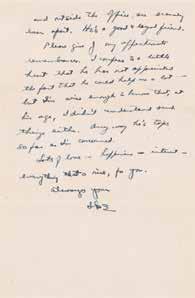 and outside the office, are scarcely
ever apart. He's a good & loyal friend.
Please give my affectionate
remembrances. I confess to a little
hurt that he has not appreciated
the fact that he could help me a lot —
but I'm wise enough to know that, at
his age, I didn't understand such
things either. Any way he's tops
so far as I'm concerned.
Lots of love — happiness — interest —
everything that's nice, for you.
Always yours